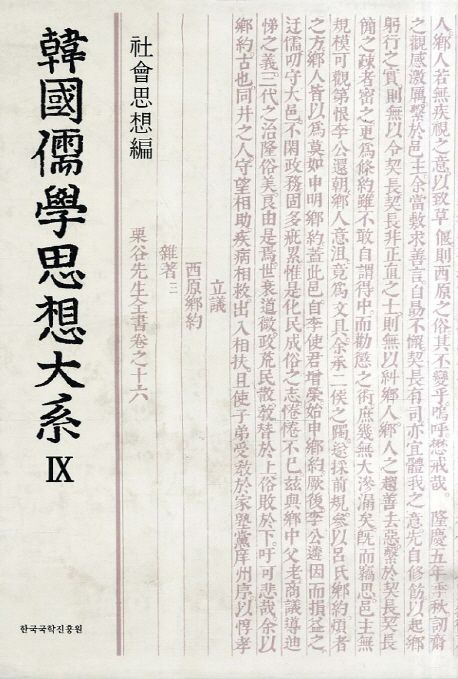 韓國儒學思想大系 IX
社會思想編
栗谷先生全書卷之十六
雜著三
西原鄕約
立議
鄕約古也。同井之人守望相助疾病相救出入相扶且使子弟受敎於家塾黨庠州序以惇孝
悌之義。三代之治隆俗美良由是焉。世衰道微政荒民散敎替於上俗敗於下。吁可悲哉。余以
迂儒叨守大邑。不閑政務固多疵累惟是化民成俗之志惓惓不已玆與鄕中父老商議導迪
之方。鄕人皆以爲莫如申明鄕約。蓋此邑。自李使君增榮始申鄕約。厥後李公遴因而損益之。
規模可觀第恨李公還朝。鄕人意沮竟爲文具。余承二侯之躅。遂採前規。參以呂氏鄕約。煩者
簡之疎者密之。更爲條約雖不敢自謂得中。而勸懲之術庶幾無大滲漏矣。旣而竊思。邑主無
躬行之實則無以令契長。契長非正直之士。則無以糾鄕人。鄕人之趨善去惡。繫於契長。契長
之觀感激厲。繫於邑主。余當敷求善言。自勖不懈。契長有司亦宜體我之意。先自修飭。以起鄕
人。鄕人若無疾視之意。以致草偃則西原之俗。其不變乎。嗚呼懋戒哉。 隆慶五年季秋訒齋
한국국학진흥원